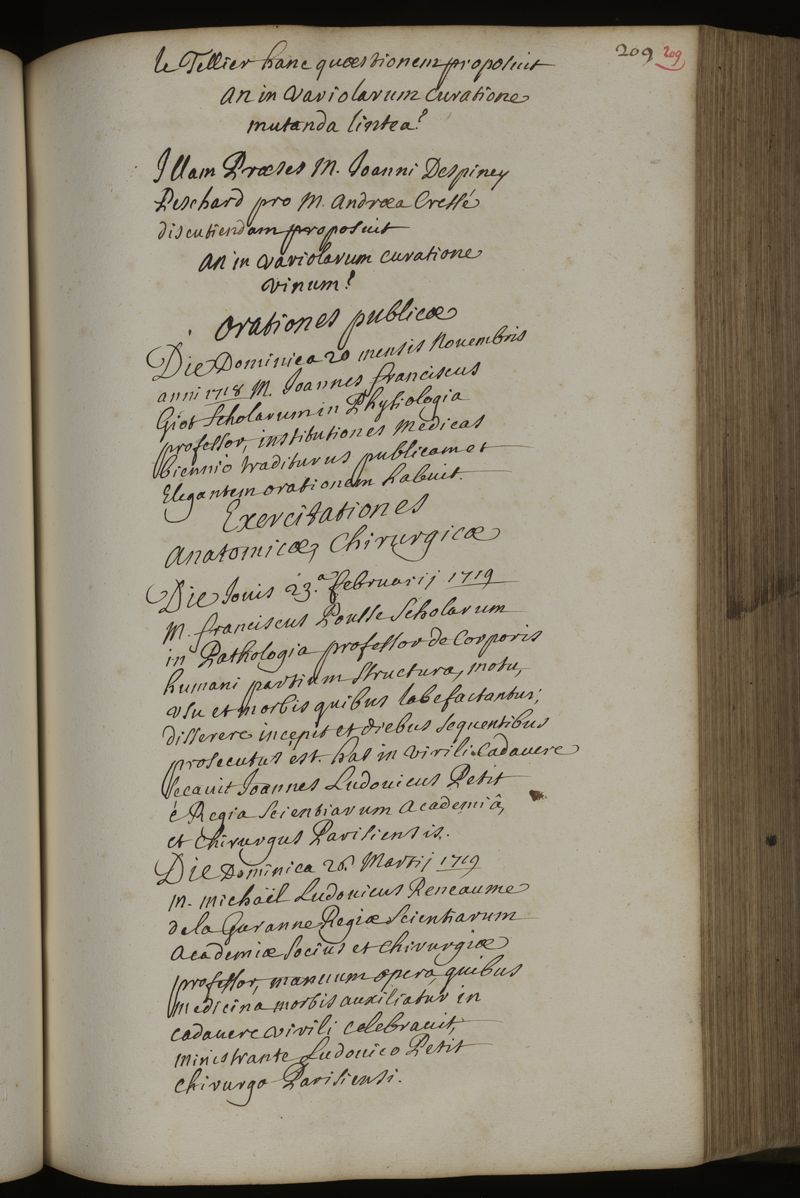 209 209
le Tellier hanc quæstionem proposuit
an in variolarum curatione
mutanda lintea?
Illam Præses M. Joanni Despiney
Peschard pro M. Andræa Cressé
discutiendam proposuit
an in variolarum curatione
vinum?
Orationes publicæ
Die Dominica 20 mensis Nouembris
anni 1718 M. Joannes franciscus
Giot Scholarum in Physiologia
professor, institutiones Medicas
biennio traditurus publicam et
Elegantem orationem habuit.
Exercitationes
Anatomicæ, Chirurgicæ
Die Jouis 23.a februarij 1719
M. franciscus Pousse Scholarum
in Pathologia professor de Corporis
humani partium structura, motu,
vsu et morbis quibus labefactantur,
disserere incepit et diebus sequentibus
prosecutus est. has in virili Cadauere
secauit Joannes Ludouicus Petit
è Regia Scientiarum Academiâ,
et Chirurgus Parisiensis.
Die Dominica 26. Martij 1719
M. Michaël Ludouicus Reneaume
de la Garanne Regiæ Scientiarum
Academiæ Socius et Chirurgiæ
professor, manuum opera, quibus
Medicina morbis auxiliatur in
cadauere virili celebrauit,
ministrante Ludouico Petit
Chirurgo Parisiensi.